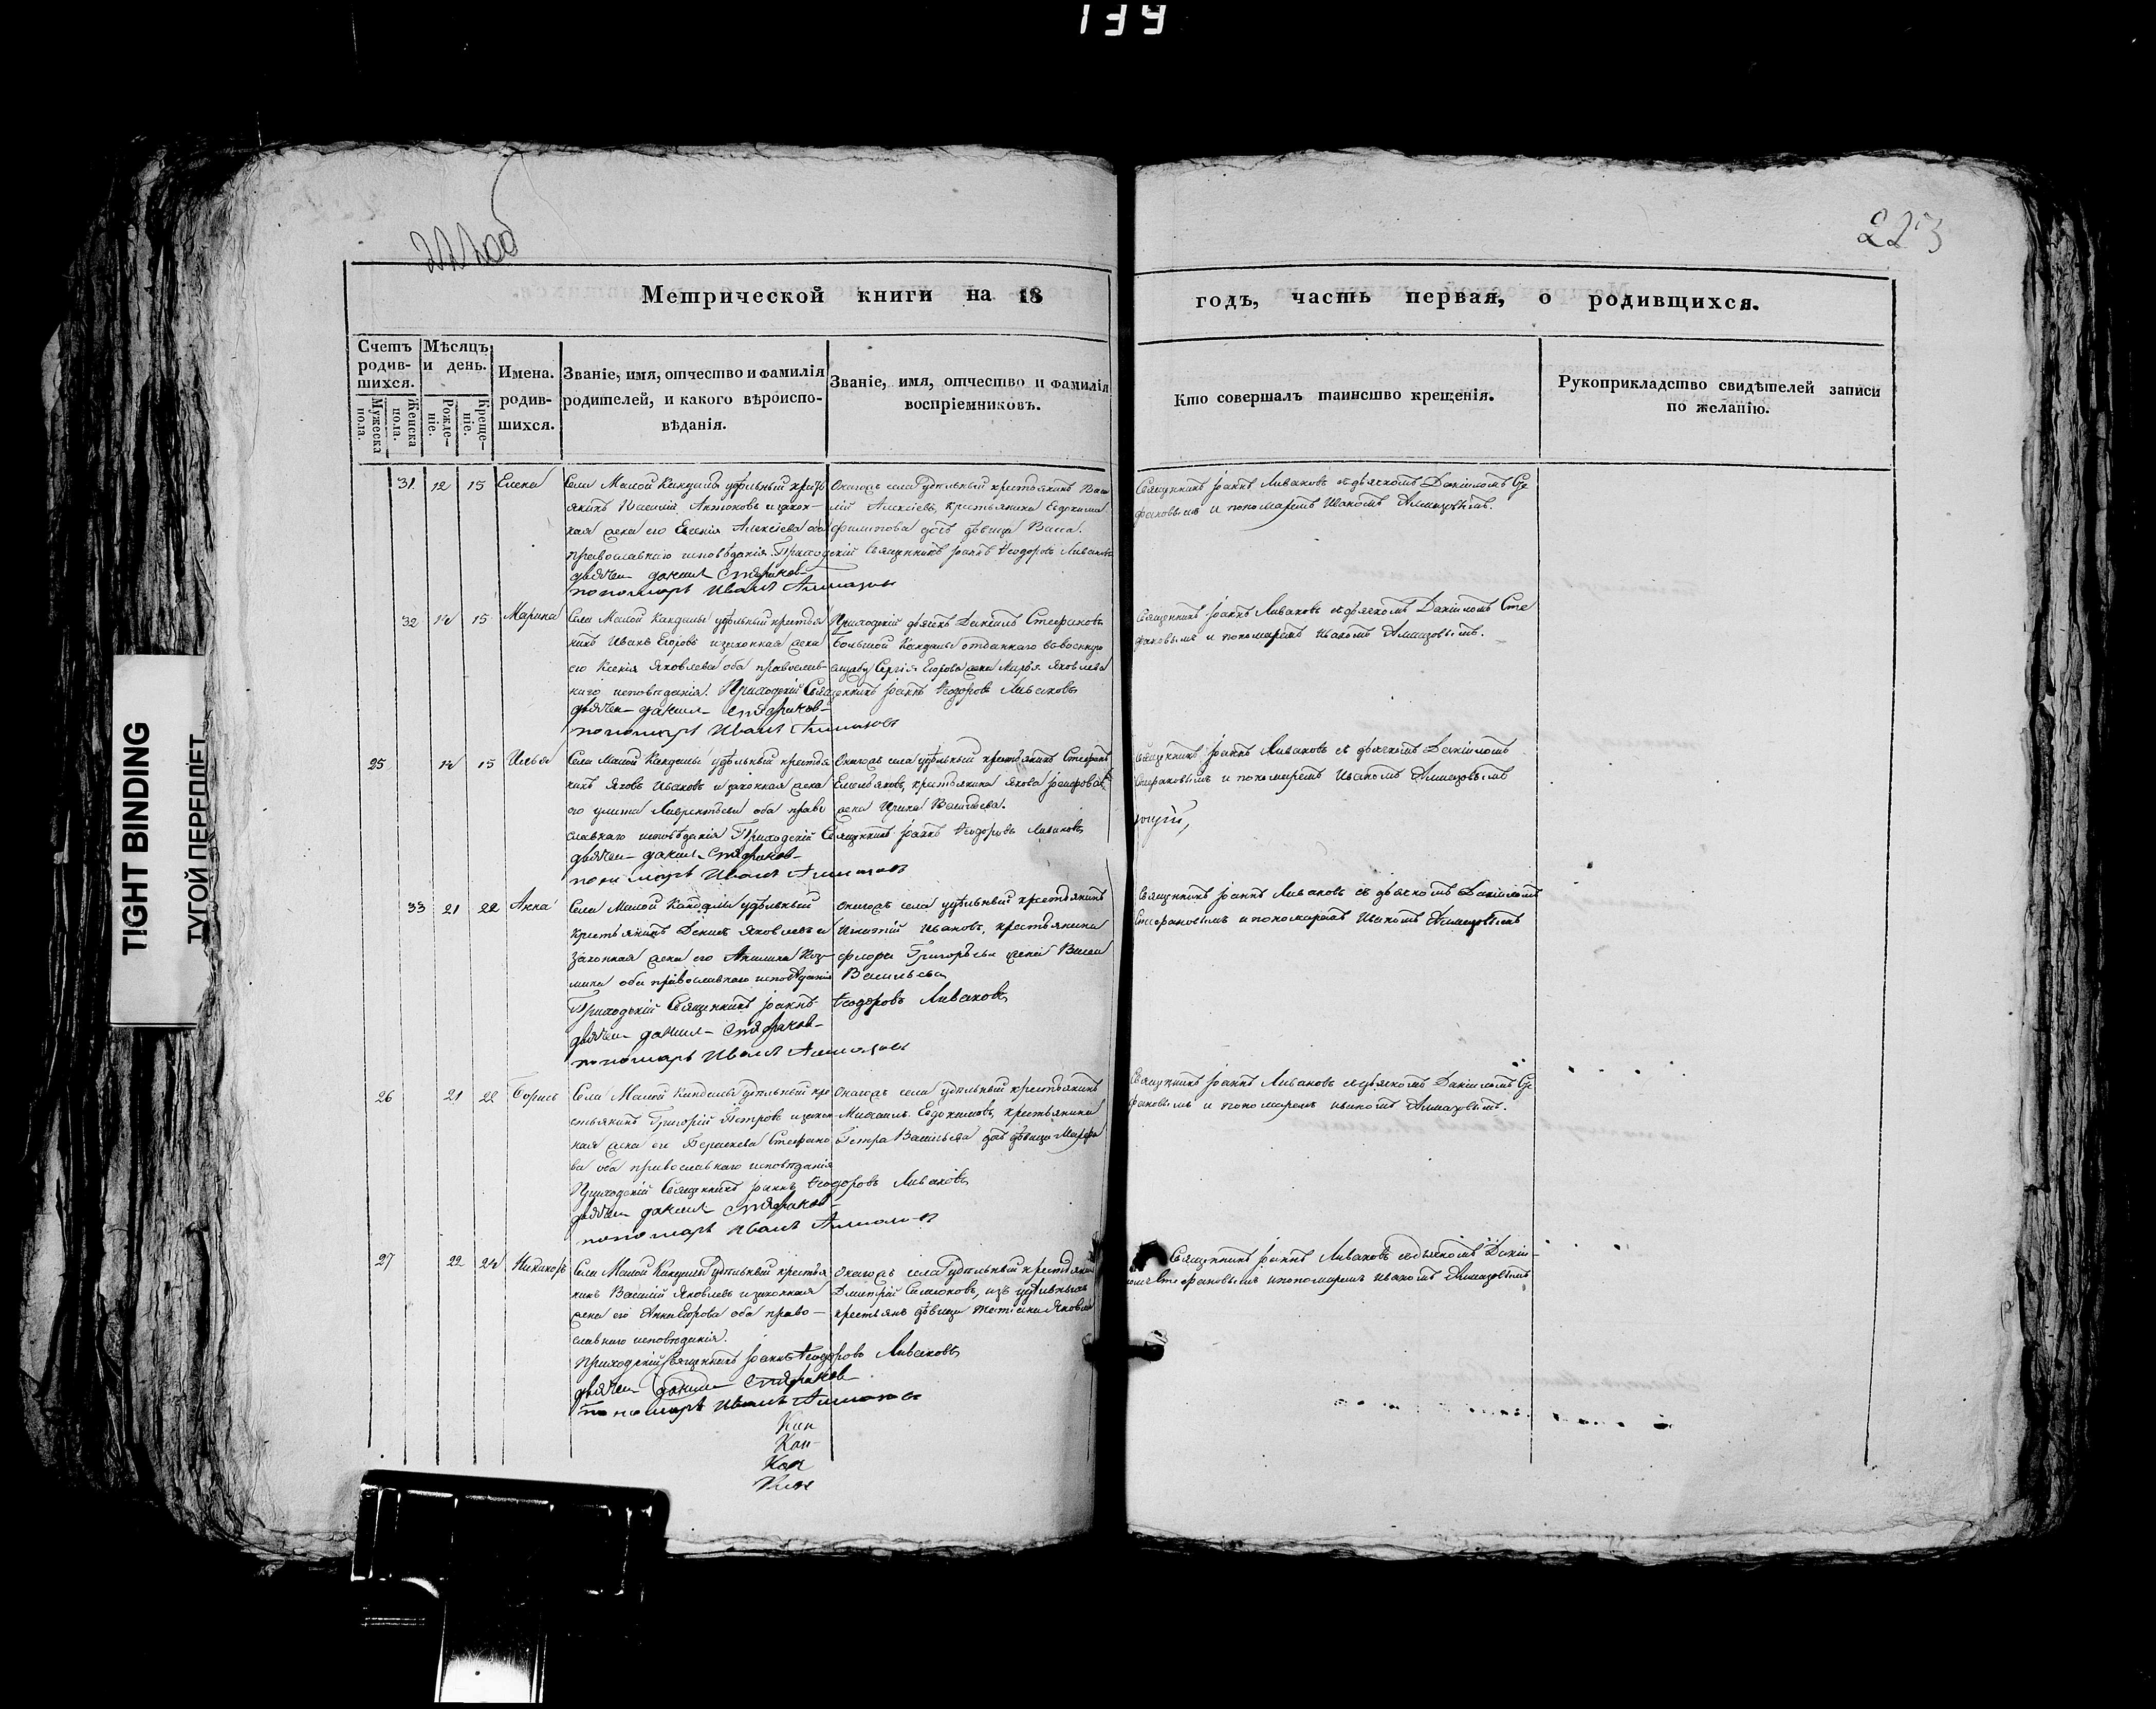 139
222 об
223
Метрической книги на 18 годъ, часть первая, о родившихся.
Счетъ родив-шихся.
Мужеска пола.
Женска пола.
Мѣсяцъ и день.
Рожде-ніе.
Креще-ніе.
Имена родив-шихся.
Званіе, имя, отчество и фамилія родителей, и какого вѣроиспо-вѣданія.
Званіе, имя, отчество и фамилія воспріемниковъ.
Кто совершалъ таинство крещенія.
Рукоприкладство свидѣтелей записи по желанію.
31. 12 15 Елена
Села Малой Кандалы удѣльный кресть
янинъ Василій Антоновъ и закон-
ная жена его Алексѣева оба
православнаго исповѣданія. Приходскій Священникъ Іоаннъ Ѳеодоровъ Ливановъ
дьячек данил Стефанов
пономарь Иванъ Алмазов
Онагожъ села удѣльный крестьянинъ Васи
лій Алексѣевъ, крестьянина Евдокима
Филипова дочь дѣвица Васса.
Священникъ Іоаннъ Ливановъ съ дьячкомъ Даніиломъ Сте
фановымъ и пономаремъ Иваномъ Алмазовымъ.
32 14 15 Марина
Села Малой Кандалы удѣльный крестья
нинъ Иванъ Егоровъ и законная жена
его Ксенія Яковлева оба православ-
наго исповѣданія. Приходскій Священникъ Іоаннъ Ѳеодоровъ Ливановъ
дьячек данил Стефанов
пономарь Иванъ Алмазовъ
Приходскій дьячекъ Даніилъ Стефановъ
Большой Кандалы отданнаго въ военную
службу Сергія Егорова жена Марья Яковлева
Священникъ Іоаннъ Ливановъ съ дьячкомъ Даніиломъ Сте
фановымъ и пономаремъ Иваномъ Алмазовымъ.
25 14 15 Илья
Села Малой Кандалы удѣльный крестья
нинъ Яковъ Ивановъ и законная жена
его Улита Лаврентьева оба право
славнаго исповѣданія Приходскій Священникъ Іоаннъ Ѳеодоровъ Ливановъ
дьячек данил Стефанов
пономарь Иванъ Алмазовъ
Онагожъ села удѣльный крестьянинъ Стефанъ
Емельяновъ, крестьянина Якова
жена Ирина Васильева.
Священникъ Іоаннъ Ливановъ съ дьячкомъ Даніиломъ
Стефановымъ и пономаремъ Иваномъ Алмазовымъ
33 21 22 Анна
Села Малой Кандалы удѣльный
крестьянинъ Денисъ Яковлевъ и
законная жена его Акилина Коз-
мина оба православнаго исповѣданія
Приходскій Священникъ Іоаннъ Ѳеодоровъ Ливановъ
дьячек данил Стефанов
пономарь Иванъ Алмазовъ
Онагожъ села удѣльный крестьянинъ
Игнатій Ивановъ, крестьянина
Флора Григорьева жена Васса
Васильева
Священникъ Іоаннъ Ливановъ съ дьячкомъ Даніиломъ
Стефановымъ и пономаремъ Иваномъ Алмазовымъ
26 21 22 Борисъ
Села Малой Кандалы удѣльный кре
стьянинъ Григорій Петровъ и закон
ная жена его Стефано
ва оба православнаго исповѣданія
Приходскій Священникъ Іоаннъ Ѳеодоровъ Ливановъ
дьячек данил Стефанов
пономарь Иванъ Алмазовъ
Онагожъ села удѣльный крестьянинъ
Михаилъ Евдокимовъ, крестьянина
Петра Васильева дочь дѣвица Марфа
Священникъ Іоаннъ Ливановъ съ дьячкомъ Даніиломъ Сте
фановымъ и пономаремъ Иваномъ Алмазовымъ.
27 22 24 Никаноръ
Села Малой Кандалы удѣльный крестья
нинъ Василій Яковлевъ и законная
жена его Анна Егорова оба право-
славнаго исповѣданія.
Приходскій Священникъ Іоаннъ Ѳеодоровъ Ливановъ
дьячек данил Стефанов
пономарь Иванъ Алмазовъ
Онагожъ села удѣльный крестьянинъ
Дмитрій Симоновъ, изъ удѣльныхъ
крестьянъ дѣвица Яковлева
Священникъ Іоаннъ Ливановъ съ дьячкомъ Даніи-
ломъ Стефановымъ и пономаремъ Иваномъ Алмазовымъ
Кан
Кан
Кан
Кан
TIGHT BINDING
ТУГОЙ ПЕРЕПЛЕТ